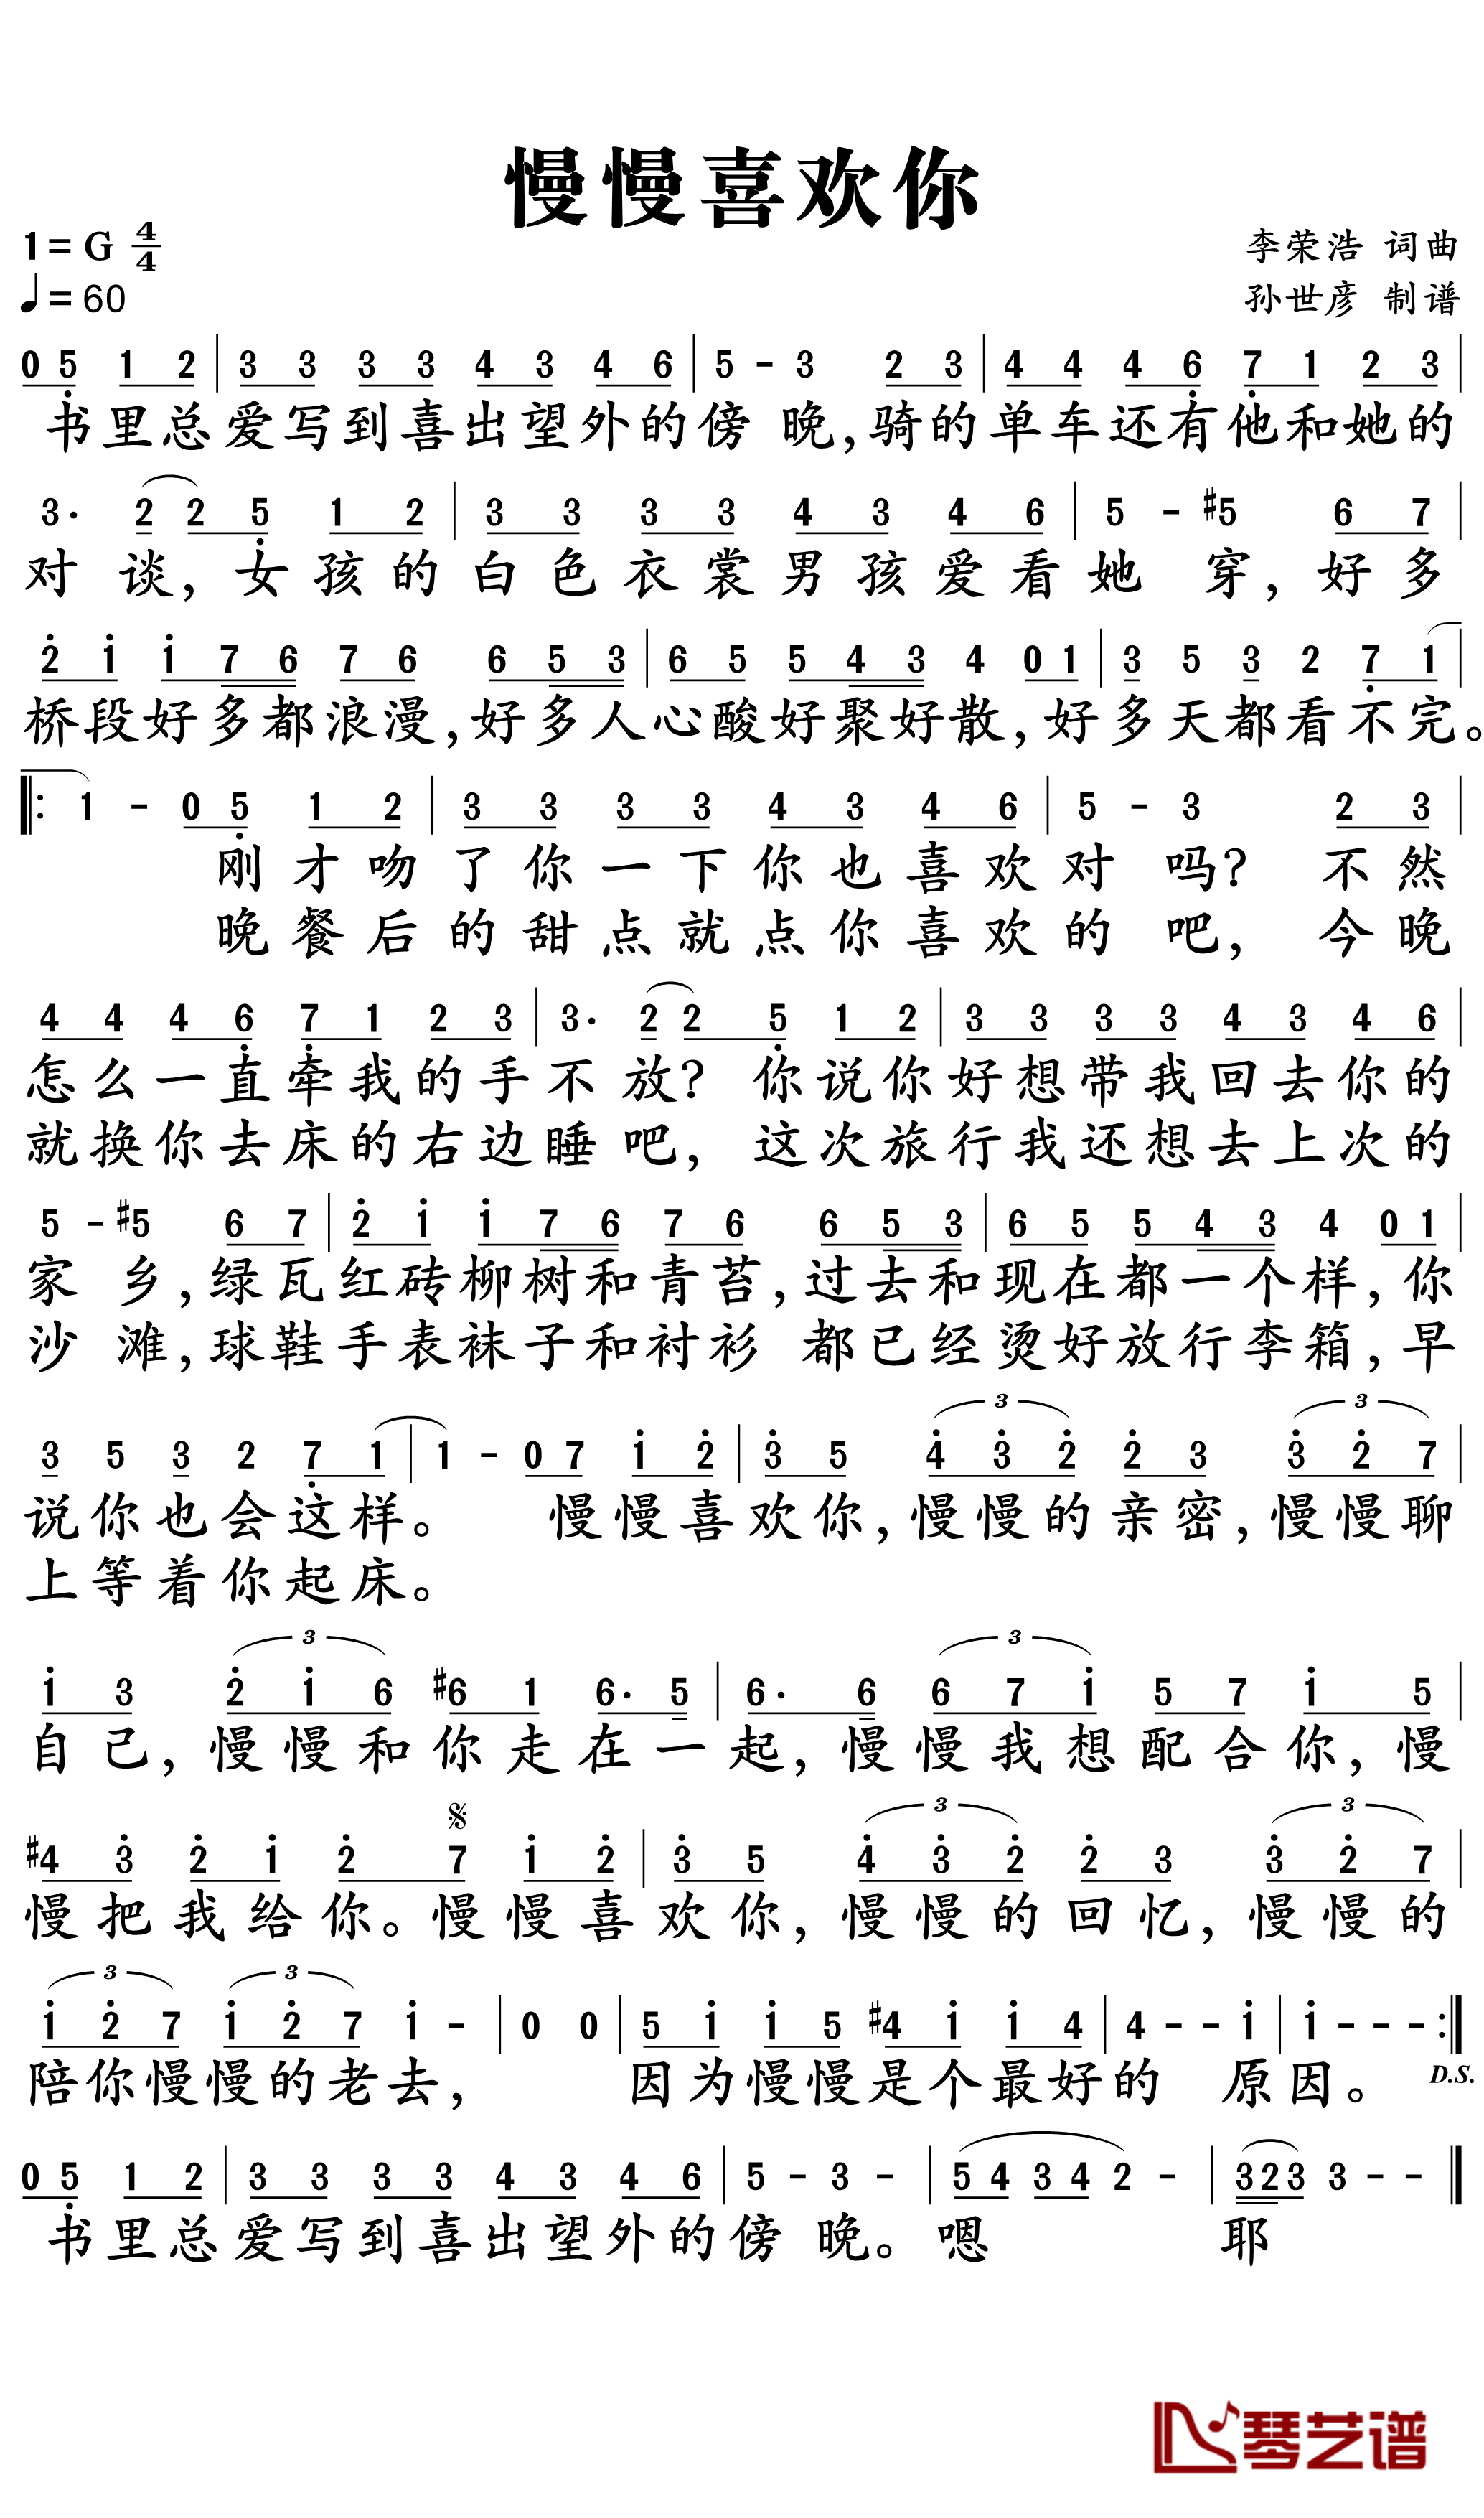 慢慢喜欢你
1=G 4/4
李荣浩 词曲
♩=60
孙世彦 制谱
0 5̣ 1 2 | 3 3 3 3 4 3 4 6 | 5 - 3 2 3 | 4 4 4 6̣ 7̣ 1 2 3 |
书里总爱写到喜出望外的傍 晚,骑的单车还有他和她的
3· 2 2 5̣ 1 2 | 3 3 3 3 4 3 4 6 | 5 - #5 6 7 |
对 谈,女孩的白色衣裳男孩爱看她 穿,好多
2̇ 1̇ 1̇ 7 6 7 6 6 5 3 | 6 5 5 4 3 4 0 1 | 3 5 3 2 7̣ 1 |
桥段好多都浪漫,好多人心酸好聚好散,好多天都看不完。
‖: 1 - 0 5̣ 1 2 | 3 3 3 3 4 3 4 6 | 5 - 3 2 3 |
刚才吻了你一下你也喜欢对 吗? 不然
晚餐后的甜点就点你喜欢的 吧, 今晚
4 4 4 6̣ 7̣ 1 2 3 | 3· 2 2 5̣ 1 2 | 3 3 3 3 4 3 4 6 |
怎么一直牵我的手不 放? 你说你好想带我回去你的
就换你去床的右边睡 吧, 这次旅行我还想去上次的
5 - #5 6 7 | 2̇ 1̇ 1̇ 7 6 7 6 6 5 3 | 6 5 5 4 3 4 0 1 |
家 乡,绿瓦红砖柳树和青苔,过去和现在都一个样,你
沙 滩,球鞋手表袜子和衬衫 都已经烫好放行李箱,早
3 3
3 5 3 2 7̣ 1 | 1 - 0 7 1̇ 2̇ | 3̇ 5 4̇ 3̇ 2̇ 2̇ 3 3̇ 2̇ 7 |
说你也会这样。 慢慢喜欢你,慢慢的亲密,慢慢聊
上等着你起床。
3 3
1̇ 3 2̇ 1̇ 6 #6 1 6· 5 | 6· 6 6 7 1̇ 5 7 1̇ 5 |
自己,慢慢和你走在一起,慢慢我想配合你,慢
𝄋 3 3
#4 3̇ 2̇ 1̇ 2̇ 7 1̇ 2̇ | 3̇ 5 4̇ 3̇ 2̇ 2̇ 3 3̇ 2̇ 7 |
慢把我给你。慢慢喜欢你,慢慢的回忆,慢慢的
3 3
1̇ 2̇ 7 1̇ 2̇ 7 1̇ - | 0 0 | 5 1̇ 1̇ 5 #4 1̇ 1̇ 4 | 4 - - 1̇ | 1̇ - - - :‖
陪你慢慢的老去, 因为慢慢是个最好的 原因。 D.S.
0 5̣ 1 2 | 3 3 3 3 4 3 4 6 | 5 - 3 - | 5 4 3 4 2 - | 3 2 3 3 - - ‖
书里总爱写到喜出望外的傍 晚。嗯 耶
琴艺谱